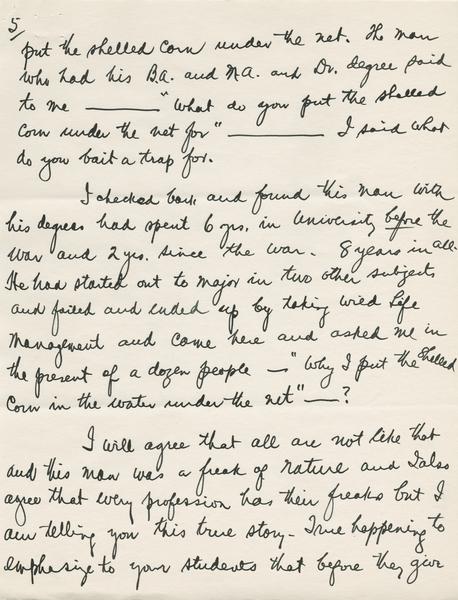 5/
put the shelled corn under the net. The man
who had his B.A. and M.A. and Dr. degree said
to me ——— "What do you put the shelled
corn under the net for" ——— I said what
do you bait a trap for.
I checked back and found this man with
his degrees had spent 6 yrs. in University before the
war and 2 yrs. since the war. 8 years in all.
He had started out to major in two other subjects
and failed and ended up by taking Wild Life
Management and came here and asked me in
the present of a dozen people — "Why I put the Shelled
Corn in the water under the net" —?
I will agree that all are not like that
and this man was a freak of nature and I also
agree that every profession has their freaks but I
am telling you this true story - True happening to
emphasize to your students that before they give